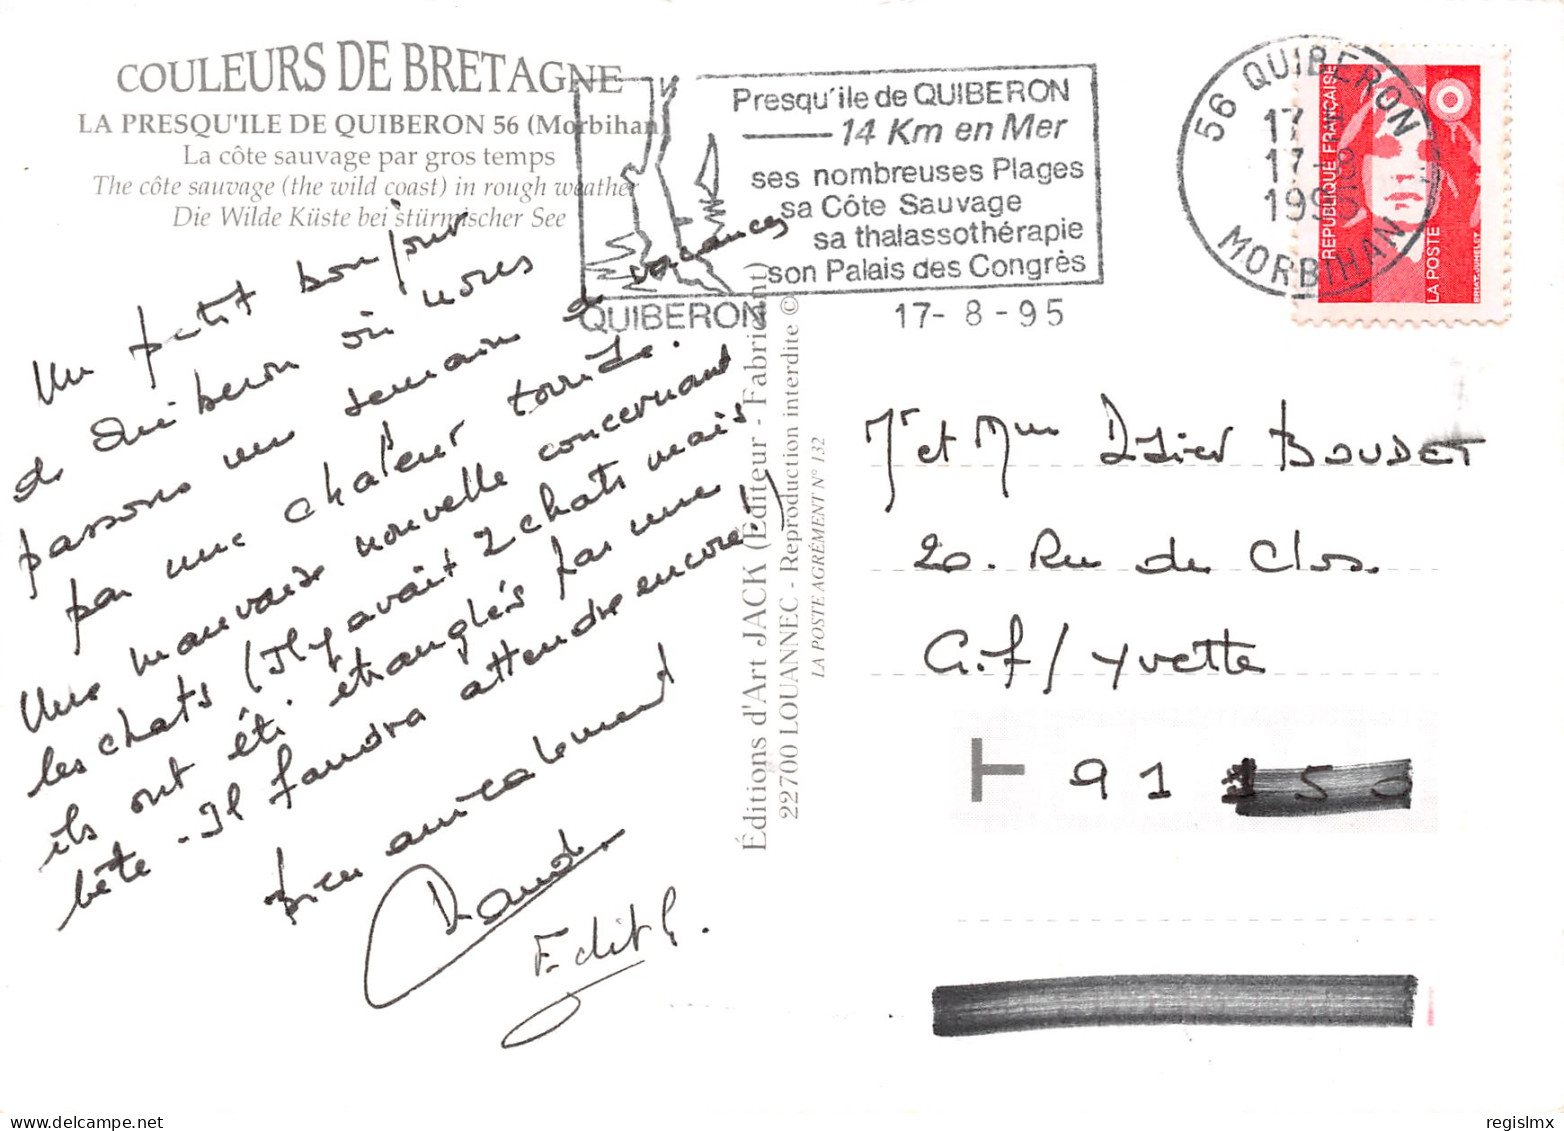 COULEURS DE BRETAGNE
LA PRESQU'ILE DE QUIBERON 56 (Morbihan)
La côte sauvage par gros temps
The côte sauvage (the wild coast) in rough weather
Die Wilde Küste bei stürmischer See
Un petit bonjour
de Quiberon où nous
passons une semaine de vacances
par une chaleur torride.
Une mauvaise nouvelle concernant
les chats (Il y avait 2 chats mais
ils ont été étranglés par une
bête - Il faudra attendre encore !)
bien amicalement
Edith.
Presqu'ile de QUIBERON
14 Km en Mer
ses nombreuses Plages
sa Côte Sauvage
sa thalassothérapie
son Palais des Congrès
QUIBERON
17- 8 -95
56 QUIBERON
17 H
17-8
1995
MORBIHAN
REPUBLIQUE FRANÇAISE
LA POSTE
BRIAT-JUMELET
Éditions d'Art JACK (Éditeur - Fabricant)
22700 LOUANNEC - Reproduction interdite ©
LA POSTE AGRÉMENT N° 132
Mr et Mme Didier BOUDET
20. Rue du Clos.
G.f/Yvette
91 150
regislmx